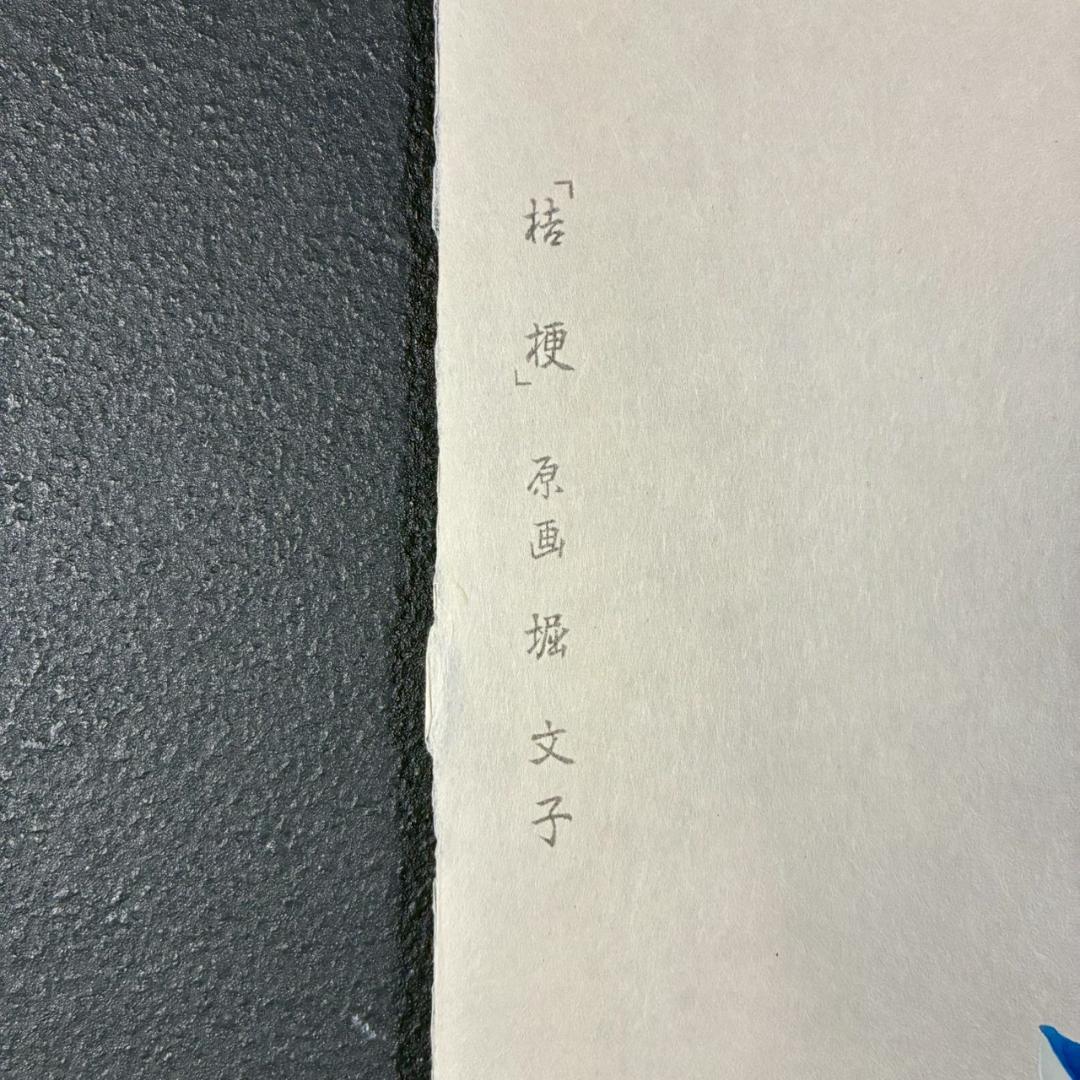 「桔梗」原画 堀 文子